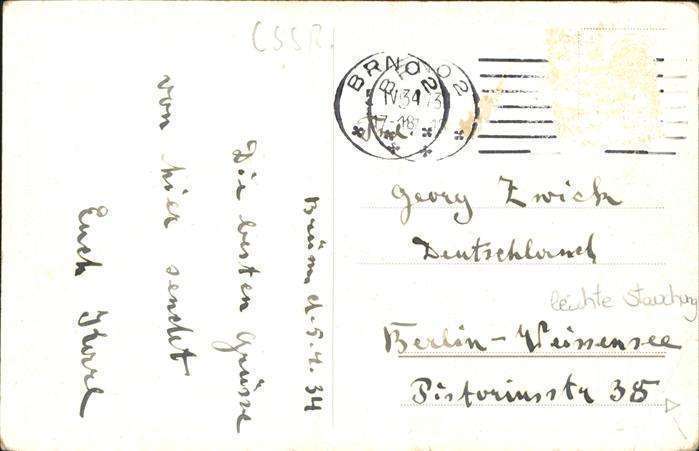 ČSSR.
BRNO 2
BRNO 2
IV 34
17-18
Brünn d. 5.4.34
Die besten Grüsse
von hier sendet
Euch Karl
Georg Zwick
Deutschland
leichte Stauchung
Berlin - Weissensee
Pistoriusstr 38